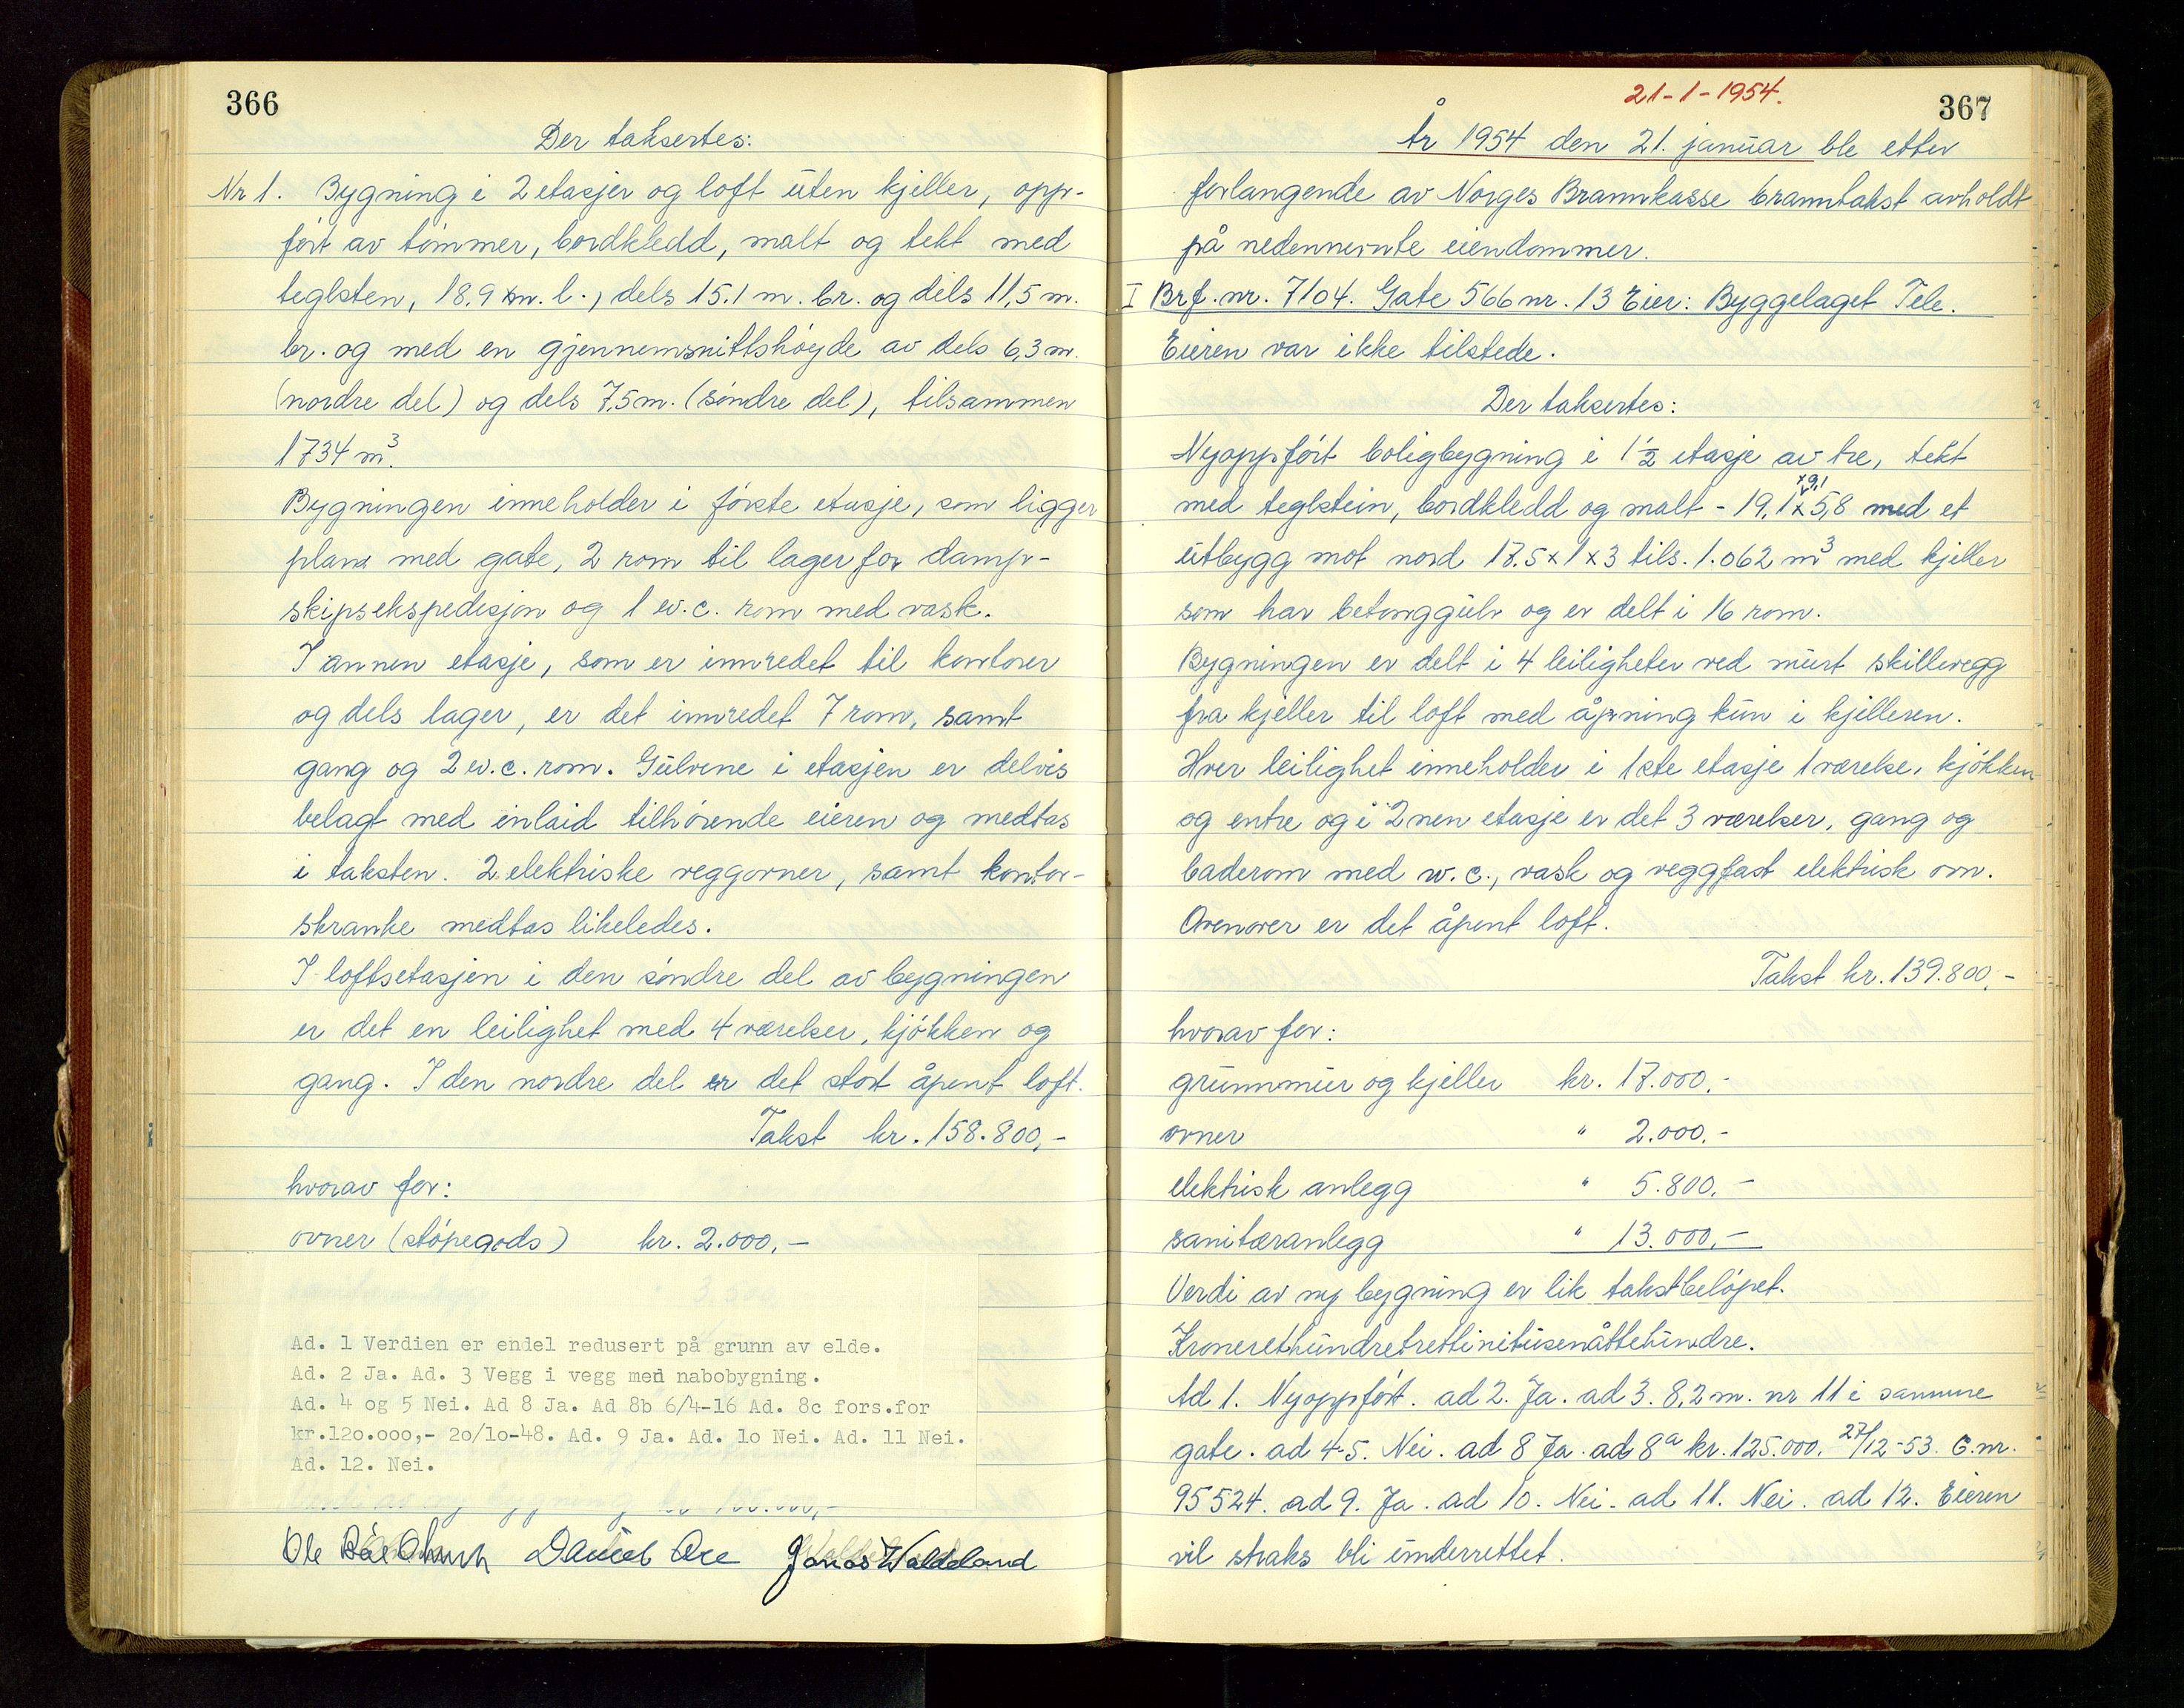 366
Der taksertes:
Nr 1. Bygning i 2 etasjer og loft uten kjeller, opp-
ført av tømmer, bordkledd, malt og tekt med
teglsten, 18.9 m. l., dels 15.1 m. br. og dels 11,5 m.
br. og med en gjennemsnittshøyde av dels 6,3 m.
(nordre del) og dels 7,5 m. (søndre del), tilsammen
1734 m³.
Bygningen inneholder i første etasje, som ligger
plana med gate, 2 rom til lager for damp-
skipsekspedisjon og 1 w.c. rom med vask.
I annen etasje, som er innredet til kontorer
og dels lager, er det innredet 7 rom, samt
gang og 2 w.c. rom. Gulvene i etasjen er delvis
belagt med inlaid tilhørende eieren og medtas
i taksten. 2 elektriske veggovner, samt kontor-
skranke medtas likeledes.
I loftsetasjen i den søndre del av bygningen
er det en leilighet med 4 værelser, kjøkken og
gang. I den nordre del er det stort åpent loft.
Takst kr. 158.800,-
hvorav for:
ovner (støpegods) kr. 2.000,-
Ad. 1 Verdien er endel redusert på grunn av elde.
Ad. 2 Ja. Ad. 3 Vegg i vegg med nabobygning.
Ad. 4 og 5 Nei. Ad 8 Ja. Ad 8b 6/4-16 Ad. 8c fors.for
kr.120.000,- 20/10-48. Ad. 9 Ja. Ad. 10 Nei. Ad. 11 Nei.
Ad. 12. Nei.
Ole Daniel Aee Jonas Waldeland
21-1-1954.
367
År 1954 den 21. januar ble etter
forlangende av Norges Brannkasse branntakst avholdt
på nedennevnte eiendommer.
I Brf. nr. 7104. Gate 566 nr. 13 Eier: Byggelaget Tele.
Eieren var ikke tilstede.
Der taksertes:
Nyoppført boligbygning i 1½ etasje av tre, tekt
med teglstein, bordkledd og malt - 19.1 x 9,1 x 5,8 med et
utbygg mot nord 17.5 x 1 x 3 tils. 1.062 m³ med kjeller
som har betonggulv og er delt i 16 rom.
Bygningen er delt i 4 leiligheter ved murt skillevegg
fra kjeller til loft med åpning kun i kjelleren.
Hver leilighet inneholder i 1ste etasje 1 værelse, kjøkken
og entre og i 2nen etasje er det 3 værelser, gang og
baderom med w.c., vask og veggfast elektrisk ovn.
Ovenover er det åpent loft.
Takst kr. 139.800,-
hvorav for:
grunnmur og kjeller kr. 17.000,-
ovner " 2.000.-
elektrisk anlegg " 5.800.-
sanitæranlegg " 13.000.-
Verdi av ny bygning er lik takstbeløpet.
Kronerethundretrettinitusenåttehundre.
Ad 1. Nyoppført. ad 2. Ja. ad 3. 8,2 m. nr 11 i samme
gate. ad 4-5. Nei. ad 8 Ja. ad 8a kr. 125.000. 27/12-53. G.nr.
95524. ad 9. Ja. ad 10. Nei. ad 11. Nei. ad 12. Eieren
vil straks bli underrettet.